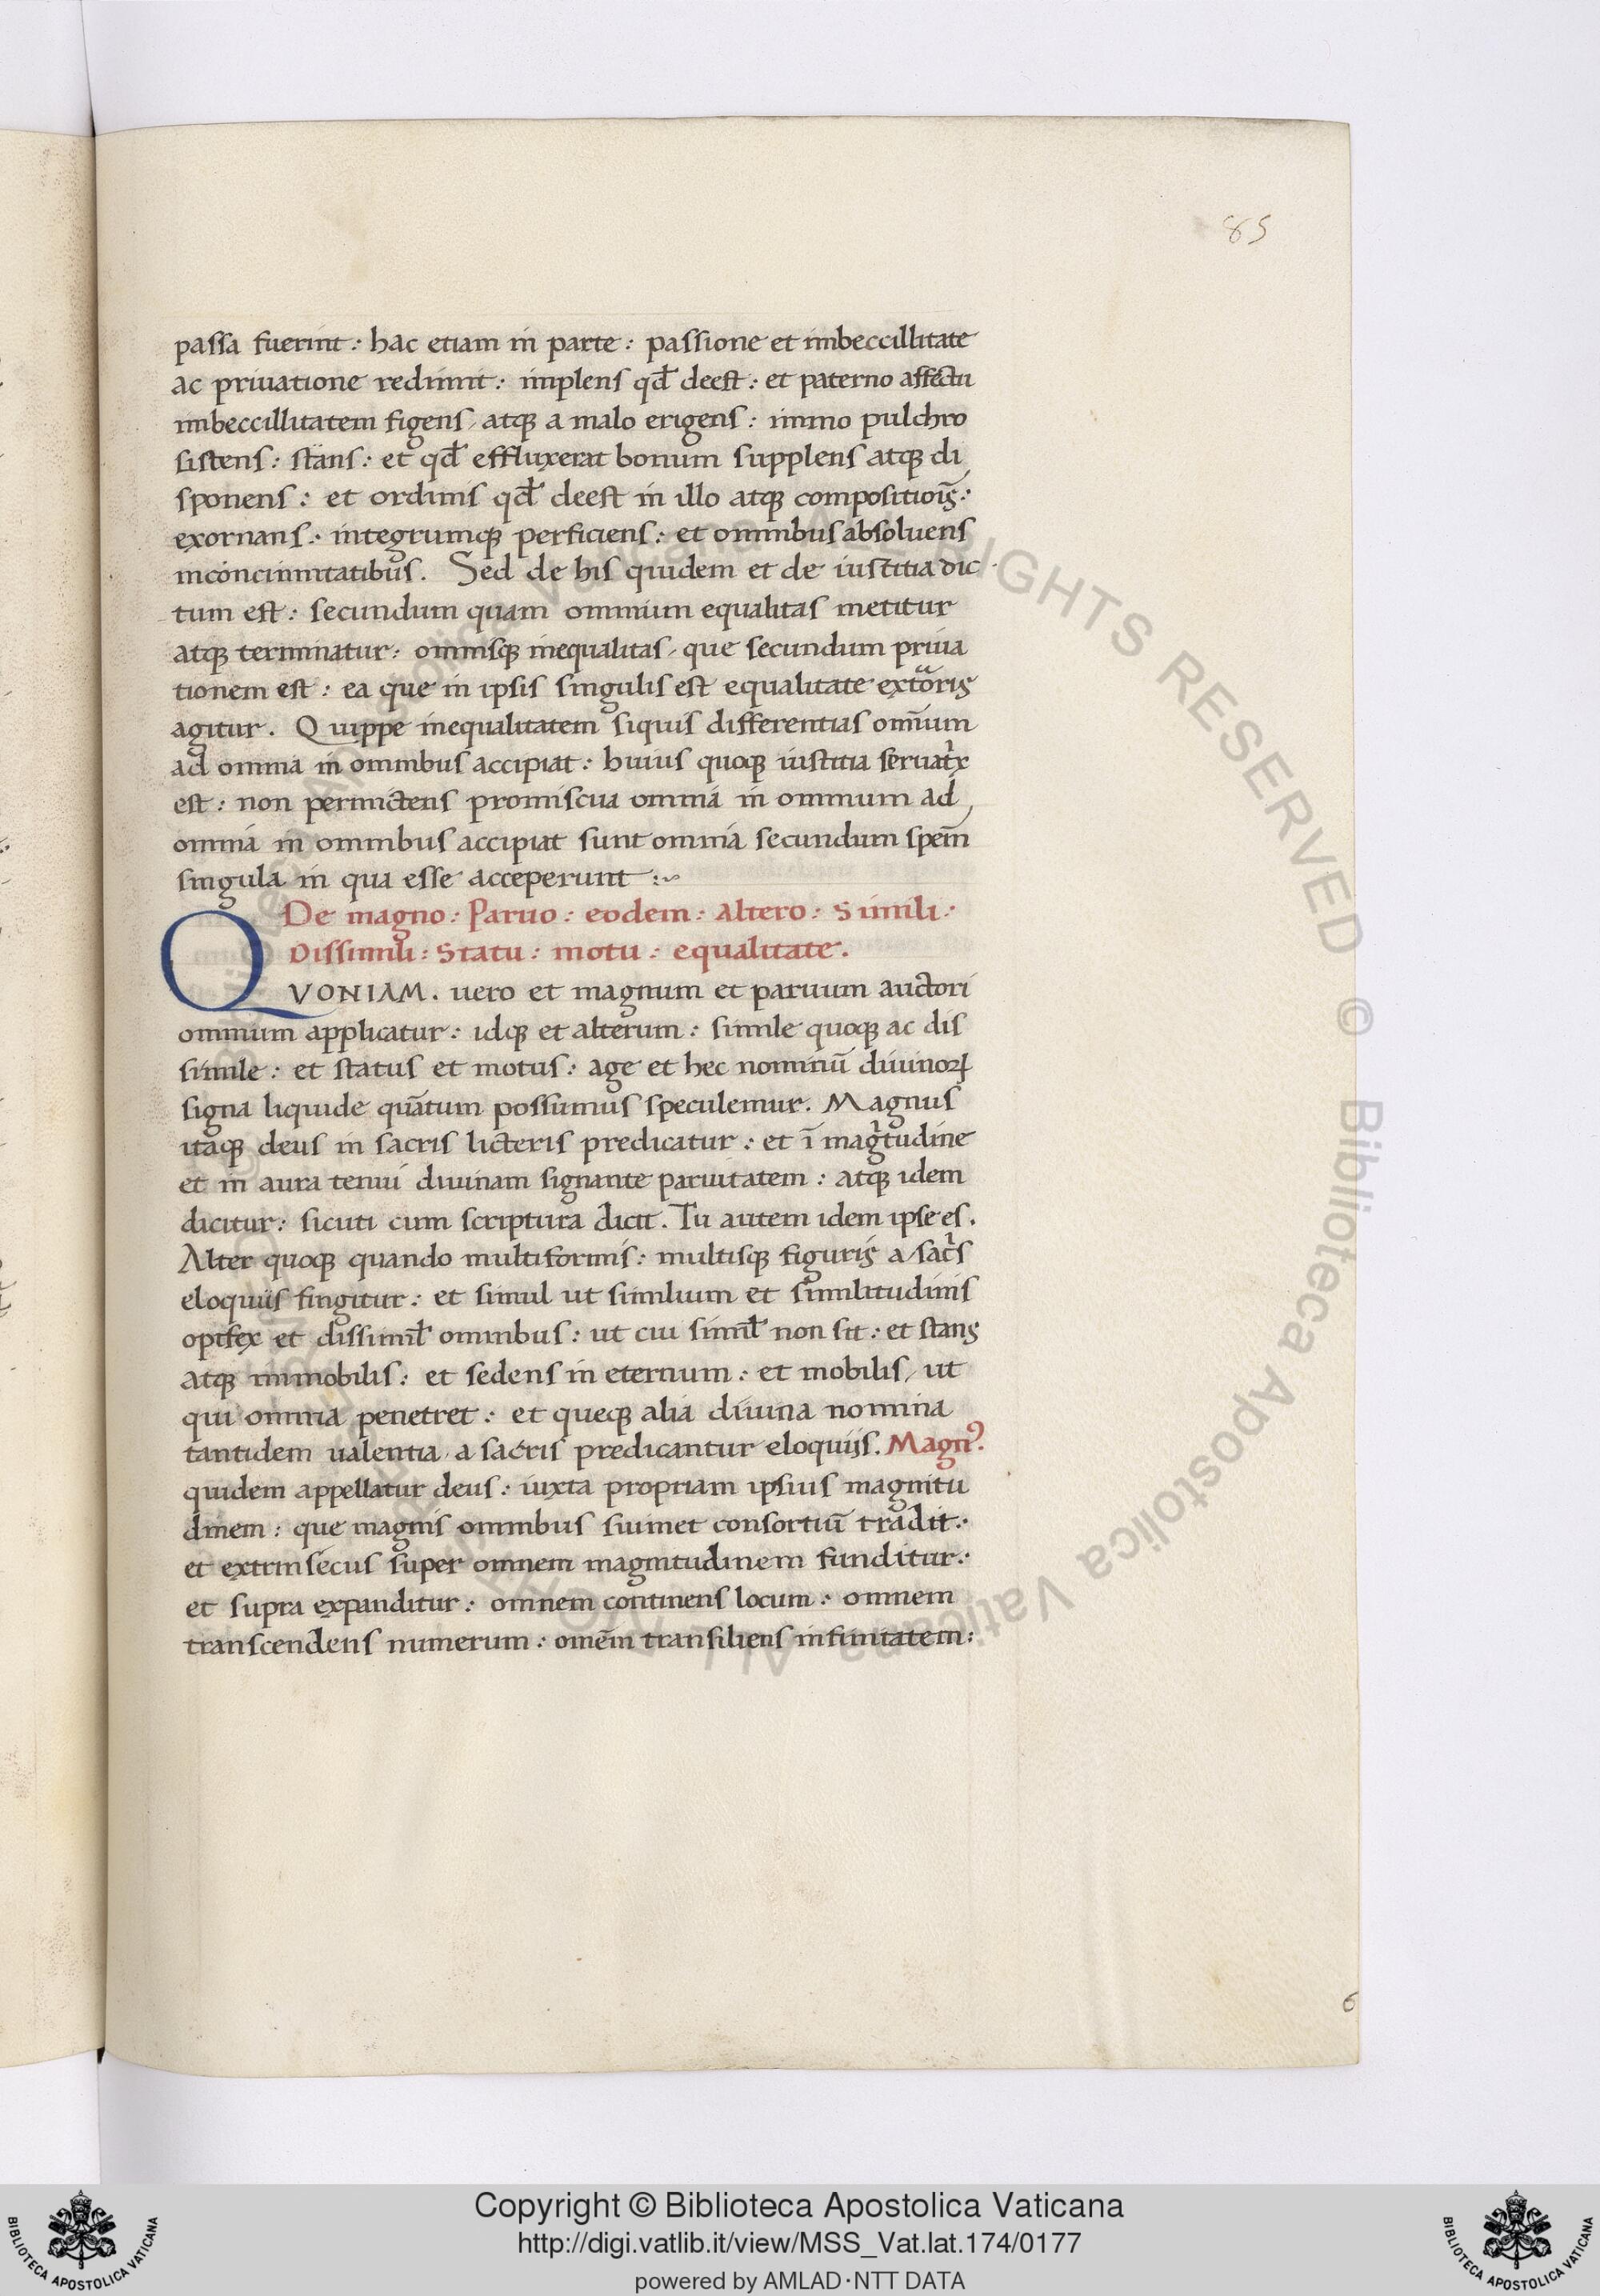 85
passa fuerint : hac etiam in parte : passione et imbeccillitate
ac priuatione redimit : implens qđ deest : et paterno affectu
imbeccillitatem figens, atqꝫ a malo erigens : immo pulchro
sistens : stans : et qđ effluxerat bonum supplens atqꝫ di
sponens : et ordinis qđ deest in illo atqꝫ compositiois̄ :
exornans : integrumqꝫ perficiens : et omnibus absoluens
inconcinnitatibus. Sed de his quidem et de iustitia dic
tum est : secundum quam omnium equalitas metitur
atqꝫ terminatur : omnisqꝫ inequalitas, que secundum priua
tionem est : ea que in ipsis singulis est equalitate
agitur. Quippe inequalitatem siquis differentias omīum
ad omnia in omnibus accipiat : huius quoqꝫ iustitia seruatͥx
est : non permictens promiscua omnia in omnium ad
omnia in omnibus accipiat sunt omnia secundum spēm
singula in qua esse acceperunt :~
De magno : Paruo : eodem : Altero : Simili :
Dissimili : Statu : motu : equalitate.
QVONIAM. uero et magnum et paruum auctori
omnium applicatur : idqꝫ et alterum : simile quoqꝫ ac dis
simile : et status et motus : age et hec nominū diuinoꝝ
signa liquide quātum possumus speculemur. Magnus
itaqꝫ deus in sacris licteris predicatur : et ī magͥtudine
et in aura tenui diuinam signante paruitatem : atqꝫ idem
dicitur : sicuti cum scriptura dicit. Tu autem idem ipse es.
Alter quoqꝫ quando multiformis : multisqꝫ figuris a sacͥs
eloquiis fingitur : et simul ut similium et similitudinis
opifex et dissimił omnibus : ut cui simił non sit : et stans
atqꝫ immobilis : et sedens in eternum : et mobilis, ut
qui omnia penetret : et queqꝫ alia diuina nomina
tantidem ualentia, a sacris predicantur eloquijs. Magnꝰ.
quidem appellatur deus : iuxta propriam ipsius magnitu
dinem : que magnis omnibus suimet consortiū tradit :
et extrinsecus super omnem magnitudinem funditur :
et supra expanditur : omnem continens locum : omnem
transcendens numerum : omēm transiliens infinitatem :
6
ALL RIGHTS RESERVED © Biblioteca Apostolica Vaticana
Copyright © Biblioteca Apostolica Vaticana
http://digi.vatlib.it/view/MSS_Vat.lat.174/0177
powered by AMLAD·NTT DATA
BIBLIOTECA APOSTOLICA VATICANA
BIBLIOTECA APOSTOLICA VATICANA